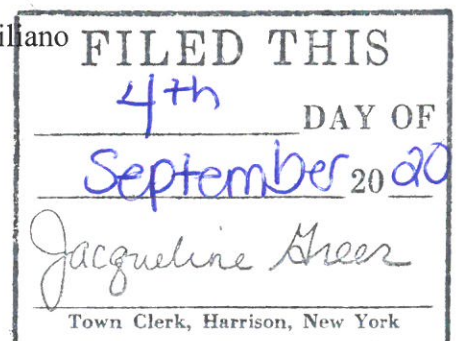 iliano
FILED THIS
4th DAY OF
September 20 20
Jacqueline Greer
Town Clerk, Harrison, New York